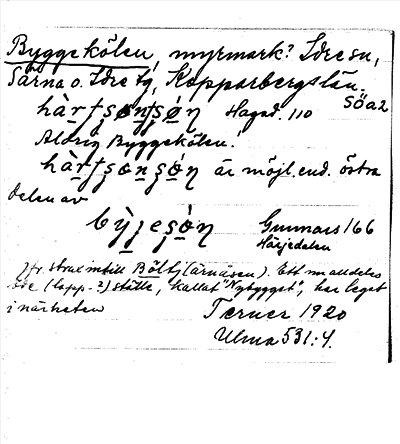 Byggekölen, myrmark? Idre sn,
Särna o. Idre tg, Kopparbergs län.
Söa2
Hagad. 110
Aldrig Byggekölen!
är möjl. end. östra
delen av
Gunnars 166
Härjedalen
Jfr. strax intill Böltj (ärnåsen). Ett nu alldeles
öde (lapp-?) ställe, kallat "Nybygget", har legat
i närheten
Terner 1920
Ulma 531:4.